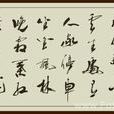 雲生處有
人家停車
坐愛楓林
晚霜葉紅